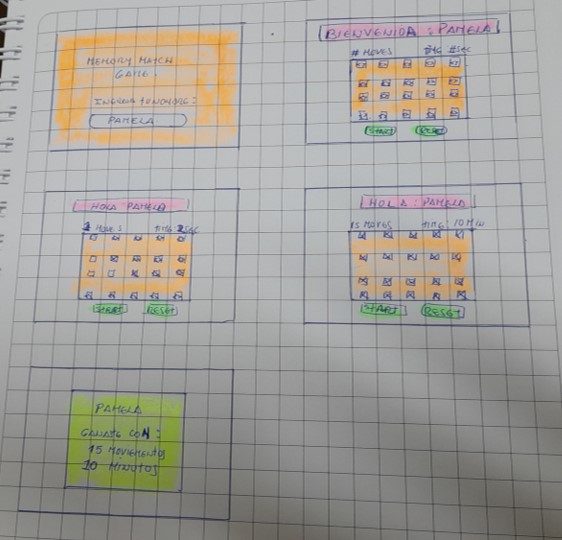 MEMORY MATCH
GAME.
INGRESA TU NOMBRE:
PAMELA
BIENVENIDA : PAMELA
# MOVES #SEG
START RESET
HOLA PAMELA
MOVES TIME: 2 SEG
START RESET
HOLA : PAMELA
15 MOVES TIME: 10 MIN
START RESET
PAMELA
GANASTE CON:
15 MOVIMIENTOS
10 MINUTOS